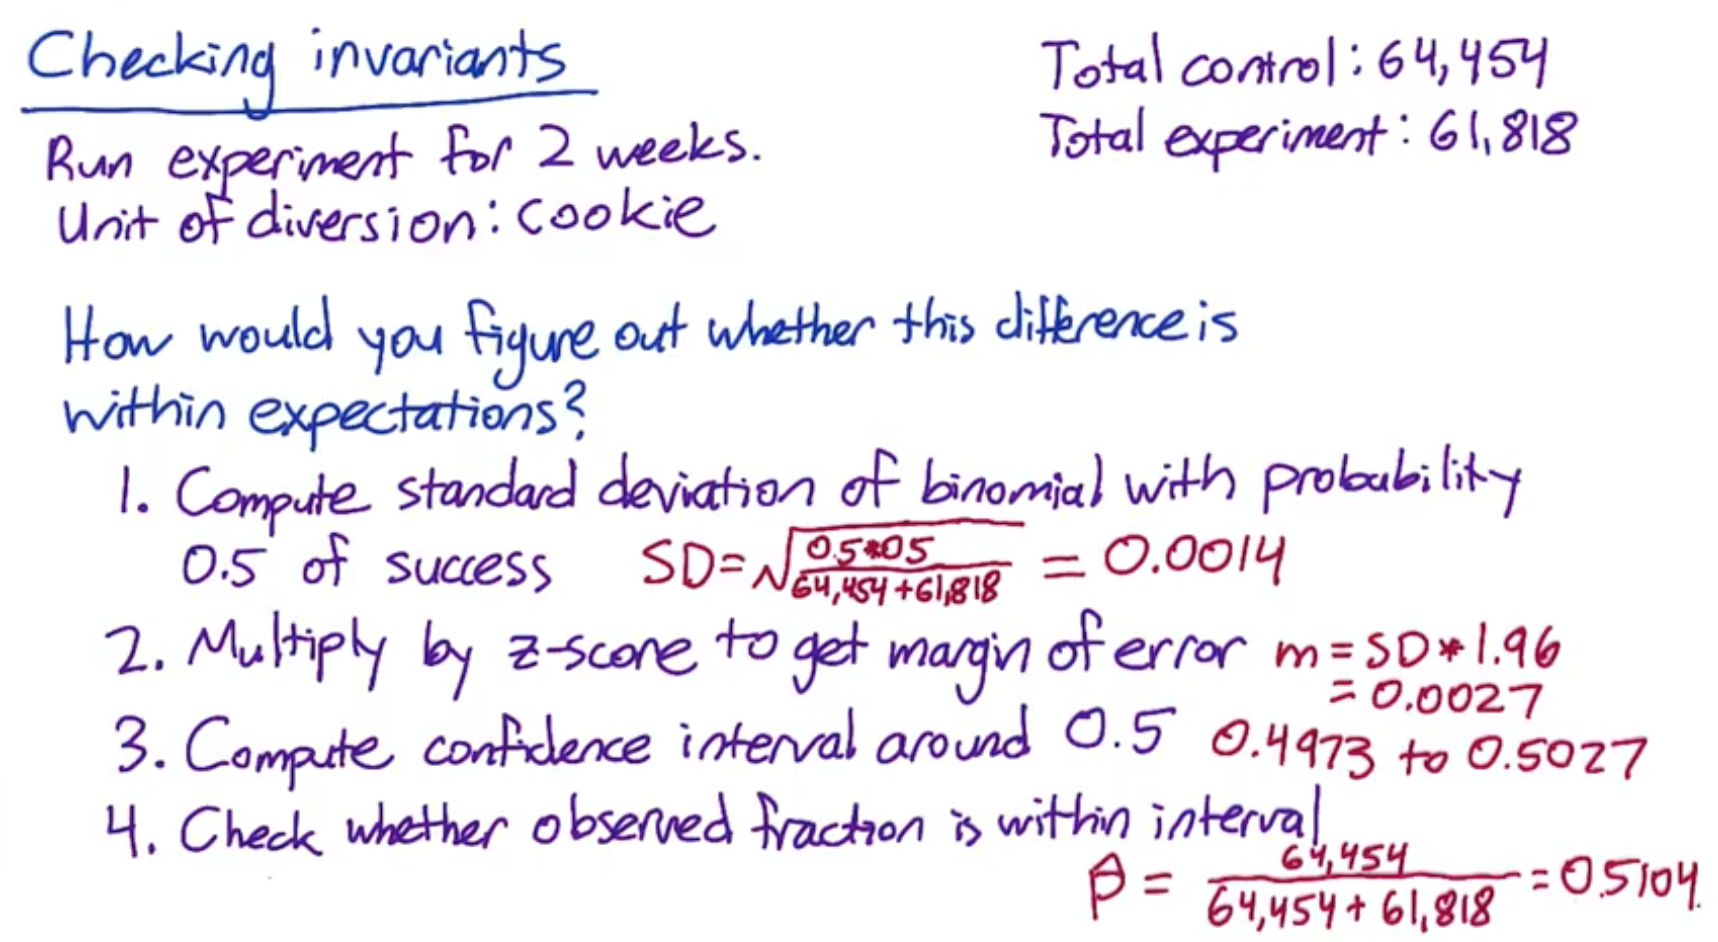 Checking invariants
Total control: 64,454
Total experiment: 61,818
Run experiment for 2 weeks.
Unit of diversion: cookie
How would you figure out whether this difference is
within expectations?
1. Compute standard deviation of binomial with probability
0.5 of success SD=√(0.5*05/64,454+61,818) = 0.0014
2. Multiply by z-score to get margin of error m=SD*1.96
= 0.0027
3. Compute confidence interval around 0.5 0.4973 to 0.5027
4. Check whether observed fraction is within interval
p̂ = 64,454/64,454+61,818 = 0.5104